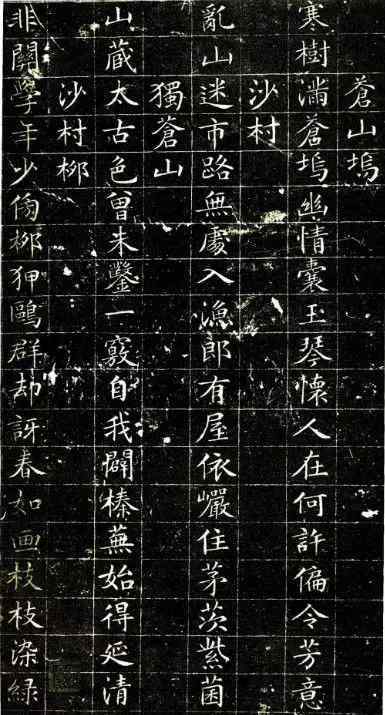 蒼山塢
寒樹滿蒼塢幽情囊玉琴懷人在何許偏令芳意
沙村
亂山迷市路無處入漁郎有屋依巖住茅茨紫菌
獨蒼山
山蔵太古色曾未鑿一竅自我闢榛蕪始得延清
沙村柳
非關學年少傍柳狎鷗群却訝春如画枝枝染緑